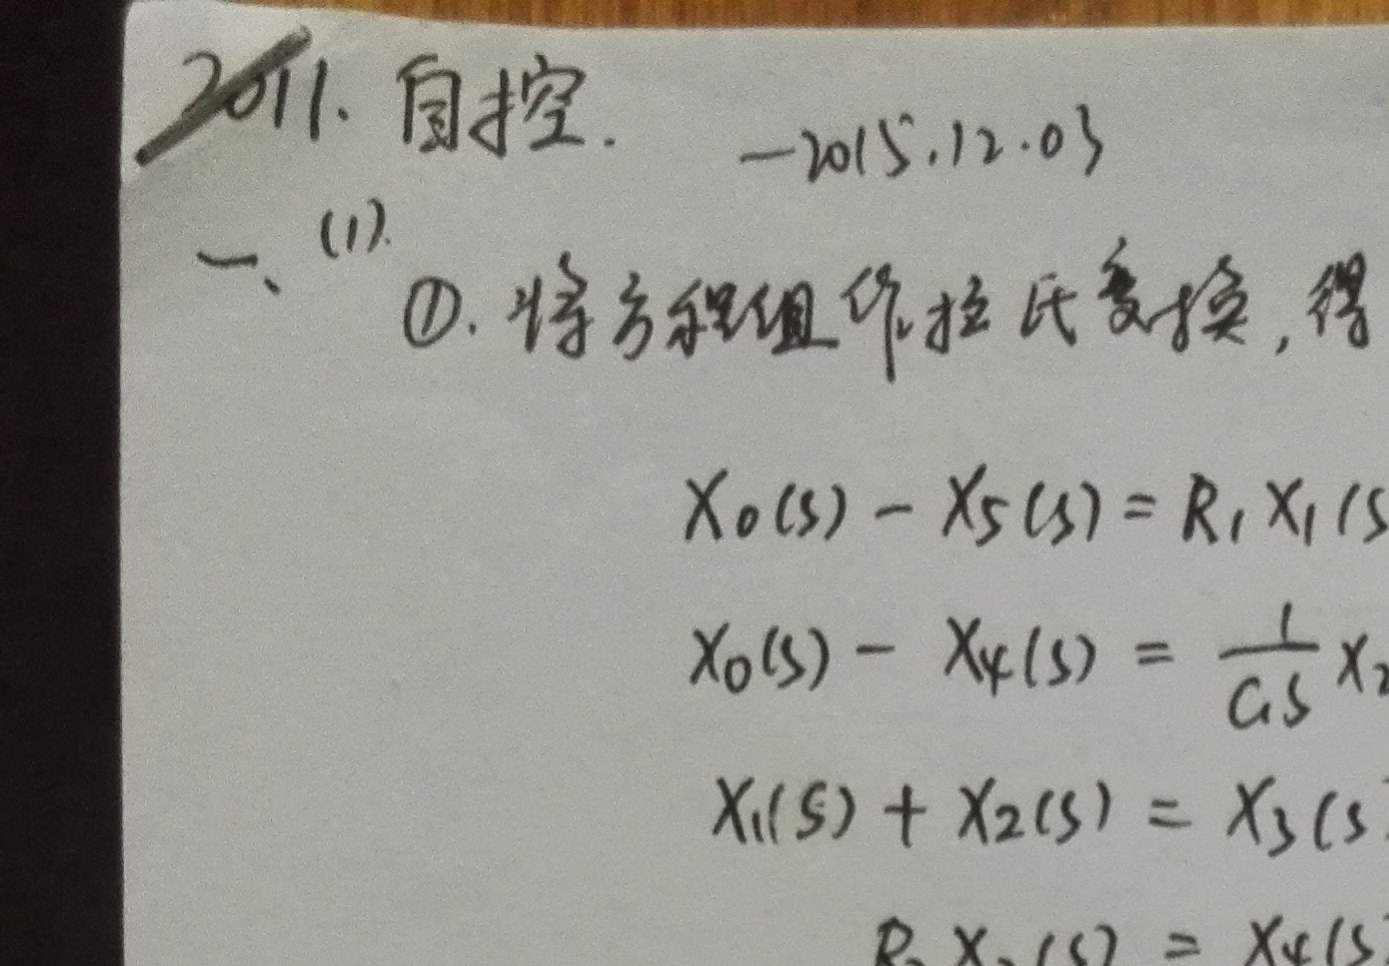 2011. 自控.
—2015.12.03
一、(1).
①. 将方程组作拉氏变换, 得
X₀(s) - X₅(s) = R₁ X₁(s
X₀(s) - X₄(s) = 1/C₁s X₂
X₁(s) + X₂(s) = X₃(s)
X₄(s)